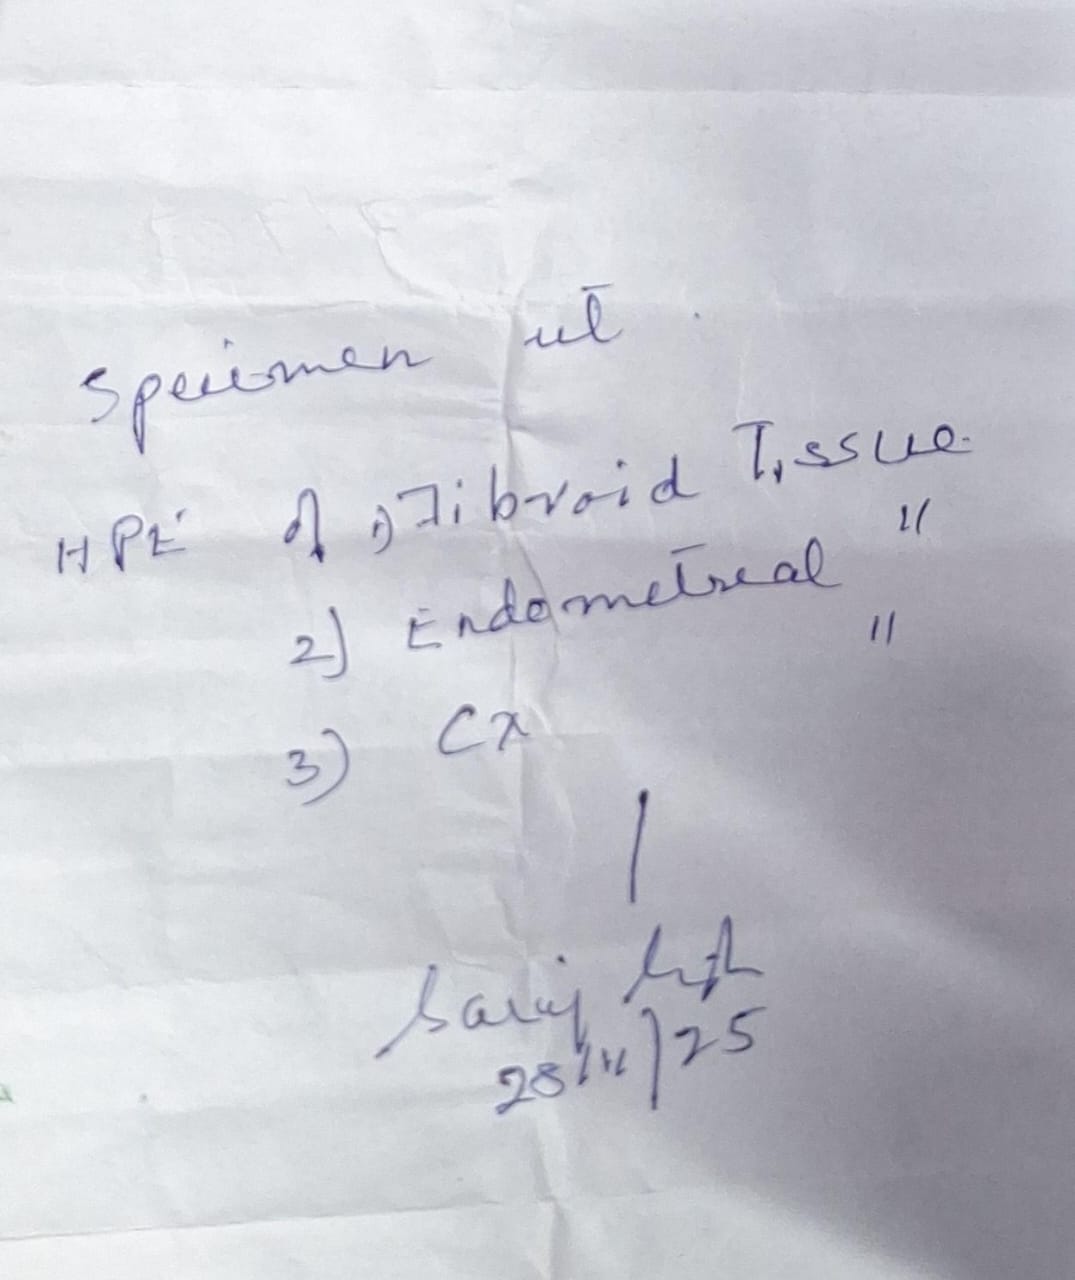 Specimen ut
HPE of 1) Fibroid Tissue
2) Endometreal "
3) Cx "
Saroj
28/11/25